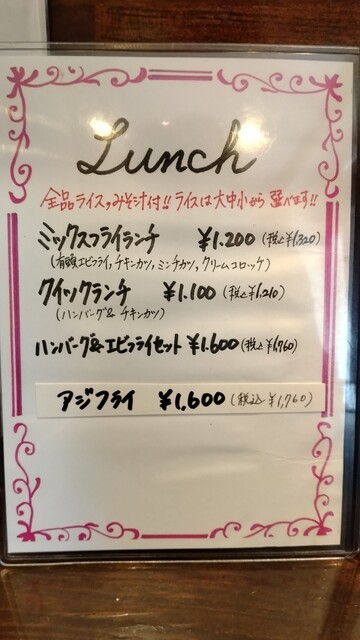 Lunch
全品ライス,みそ汁付!! ライスは大中小から選べます!!
ミックスフライランチ ¥1.200 (税込¥1,320)
(有頭エビフライ,チキンカツ,ミンチカツ,クリームコロッケ)
クイックランチ ¥1.100 (税込¥1,210)
(ハンバーグ& チキンカツ)
ハンバーグ&エビフライセット ¥1.600(税込¥1,760)
アジフライ ¥1,600 (税込 ¥1,760)